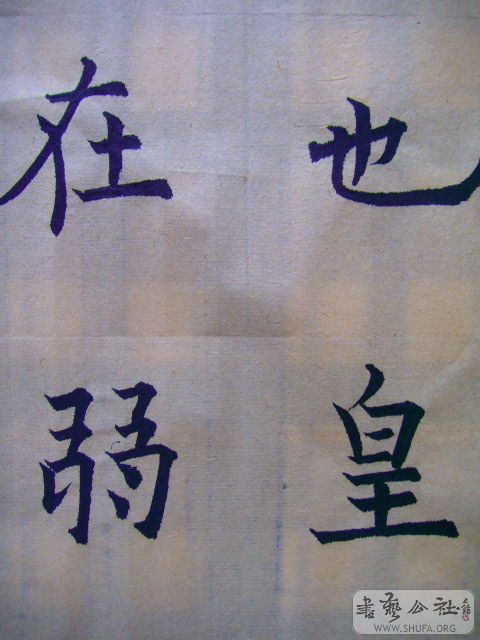 也皇
在弱
書藝公社
WWW.SHUFA.ORG